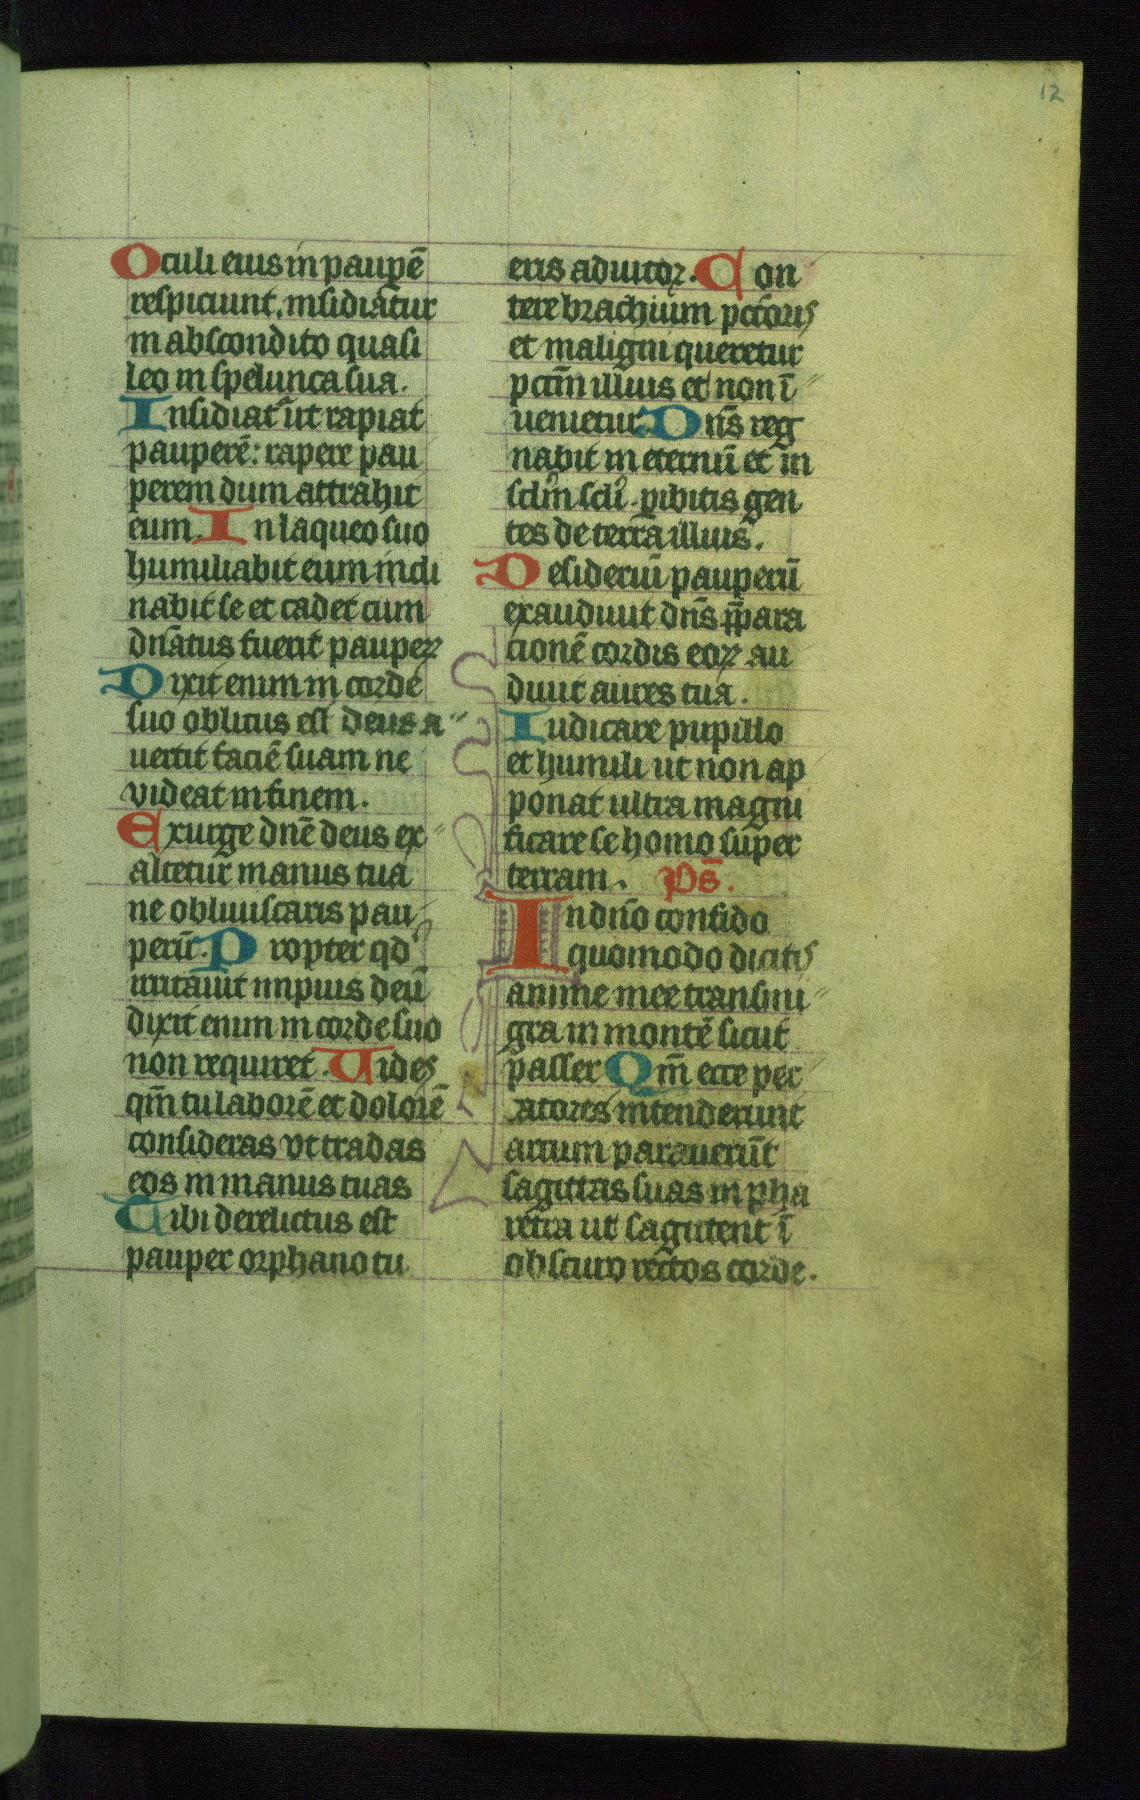 12
Oculi eius in paupē
respiciunt, insidiatur
in abscondito quasi
leo in spelunca sua.
Insidiat᷑ ut rapiat
pauperē: rapere pau
perem dum attrahit
eum. In laqueo suo
humiliabit eum incli
nabit se et cadet cum
dn̄atus fuerit pauperꝝ
Dixit enim in corde
suo oblitus est deus a
uertit faciē suam ne
videat in finem.
Exurge dn̄e deus ex
altetur manus tua
ne obliuiscaris pau
perū. Propter qd
irritauit impius deū
dixit enim in corde suo
non requiret. Uides
qm̄ tu laborē et dolorē
consideras vt tradas
eos in manus tuas
Tibi derelictus est
pauper orphano tu
eris adiutor. Con
tere brachium pctoris
et maligni queretur
pctm̄ illius et non ī
uenietur Dn̄s reg
nabit in eternū et in
sclm̄ scli. ꝑibitis gen
tes de terra illius.
Desideriū pauperū
exaudiuit dn̄s p̄para
cionē cordis eoꝝ au
diuit aures tua.
Iudicare pupillo
et humili ut non ap
ponat ultra magni
ficare se homo super
terram. Ps̄.
In dn̄o confido
quomodo dicitis
anime mee transmi
gra in montē sicut
passer Qm̄ ecce pec
catores intenderunt
arcum parauerūt
sagittas suas in pha
retra ut sagittent ī
obscuro rectos corde.